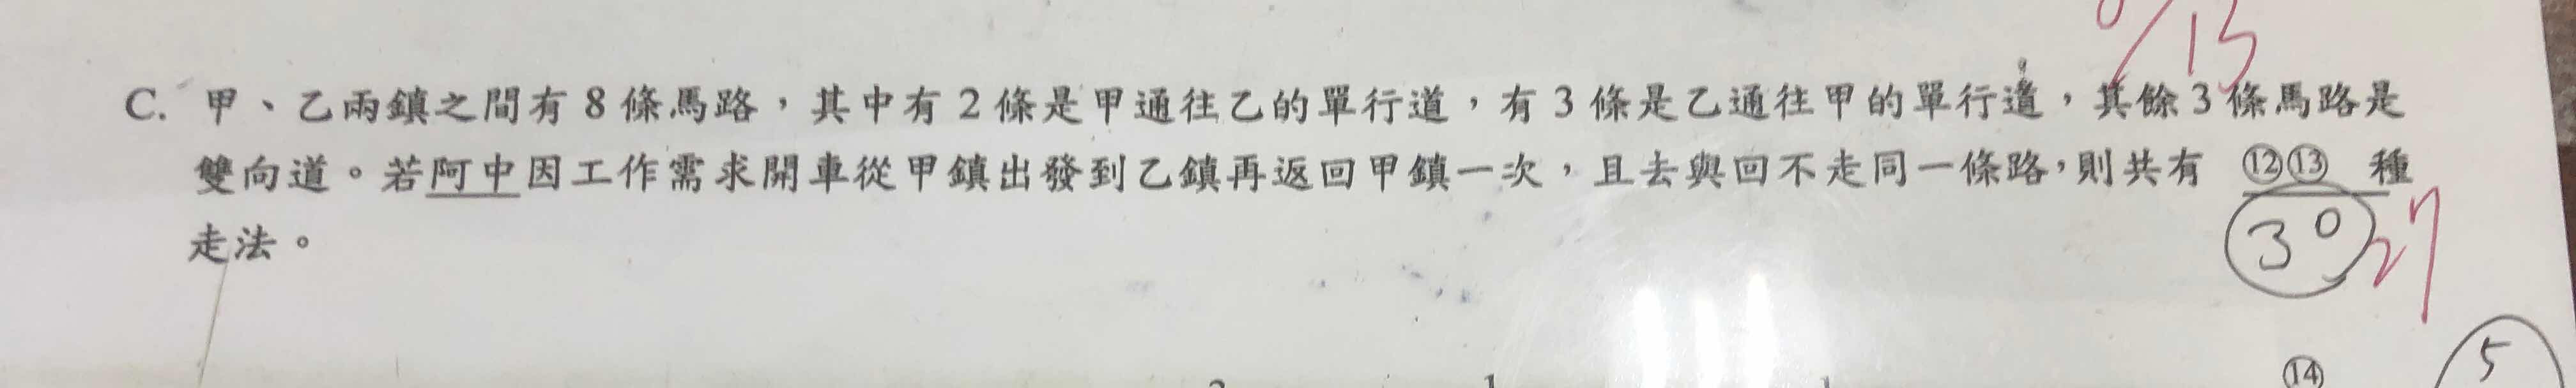 13
C. 甲、乙兩鎮之間有 8 條馬路，其中有 2 條是甲通往乙的單行道，有 3 條是乙通往甲的單行道，其餘 3 條馬路是
雙向道。若阿中因工作需求開車從甲鎮出發到乙鎮再返回甲鎮一次，且去與回不走同一條路，則共有 ⑫⑬ 種
走法。
30 27
⑭ 5